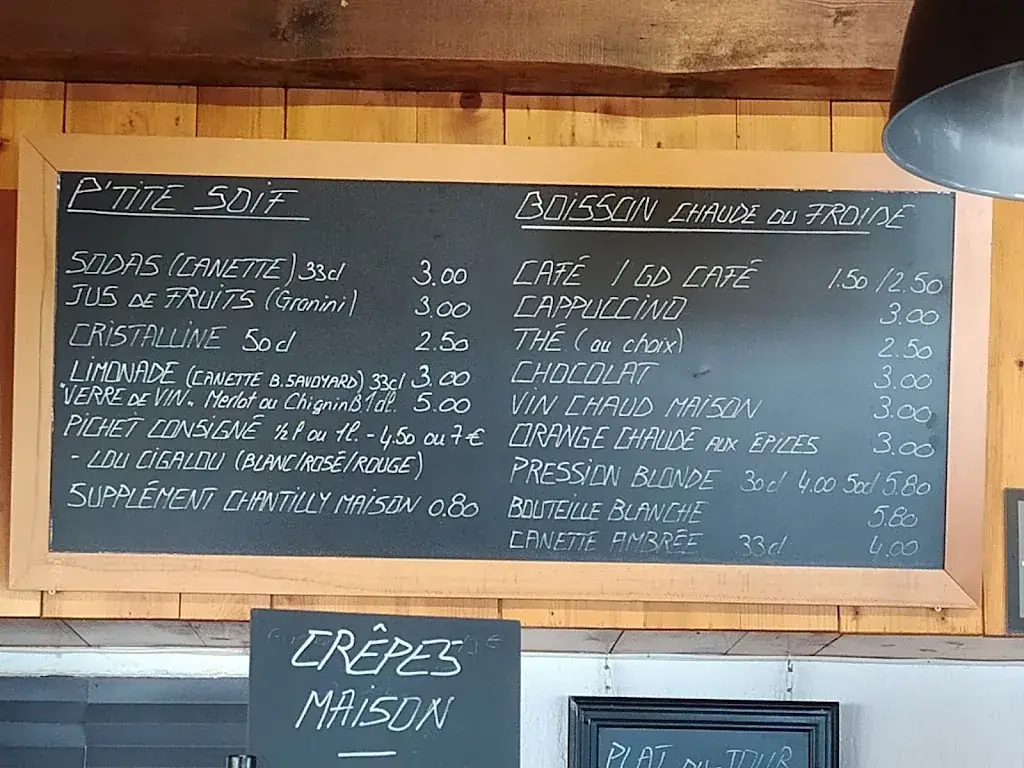 P'TITE SOIF
SODAS (CANETTE) 33cl 3.00
JUS DE FRUITS (Granini) 3.00
CRISTALLINE 50cl 2.50
LIMONADE (CANETTE B.SAVOYARD) 33cl 3.00
VERRE DE VIN. Merlot ou Chignin B. 1dl. 5.00
PICHET CONSIGNÉ ½l ou 1l. - 4,50 ou 7€
- LOU CIGALOU (BLANC/ROSÉ/ROUGE)
SUPPLÉMENT CHANTILLY MAISON 0.80
BOISSON CHAUDE OU FROIDE
CAFÉ / GD CAFÉ 1.50 / 2.50
CAPPUCCINO 3.00
THÉ (au choix) 2.50
CHOCOLAT 3.00
VIN CHAUD MAISON 3.00
ORANGE CHAUDE AUX ÉPICES 3.00
PRESSION BLONDE 30cl 4.00 50cl 5.80
BOUTEILLE BLANCHE 5.80
CANETTE AMBRÉE 33cl 4.00
CRÊPES
MAISON
PLAT DU JOUR